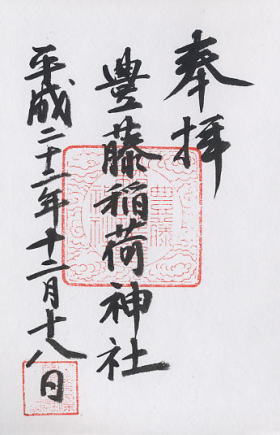 奉拝
豊藤稲荷神社
平成二十二年十二月十八日